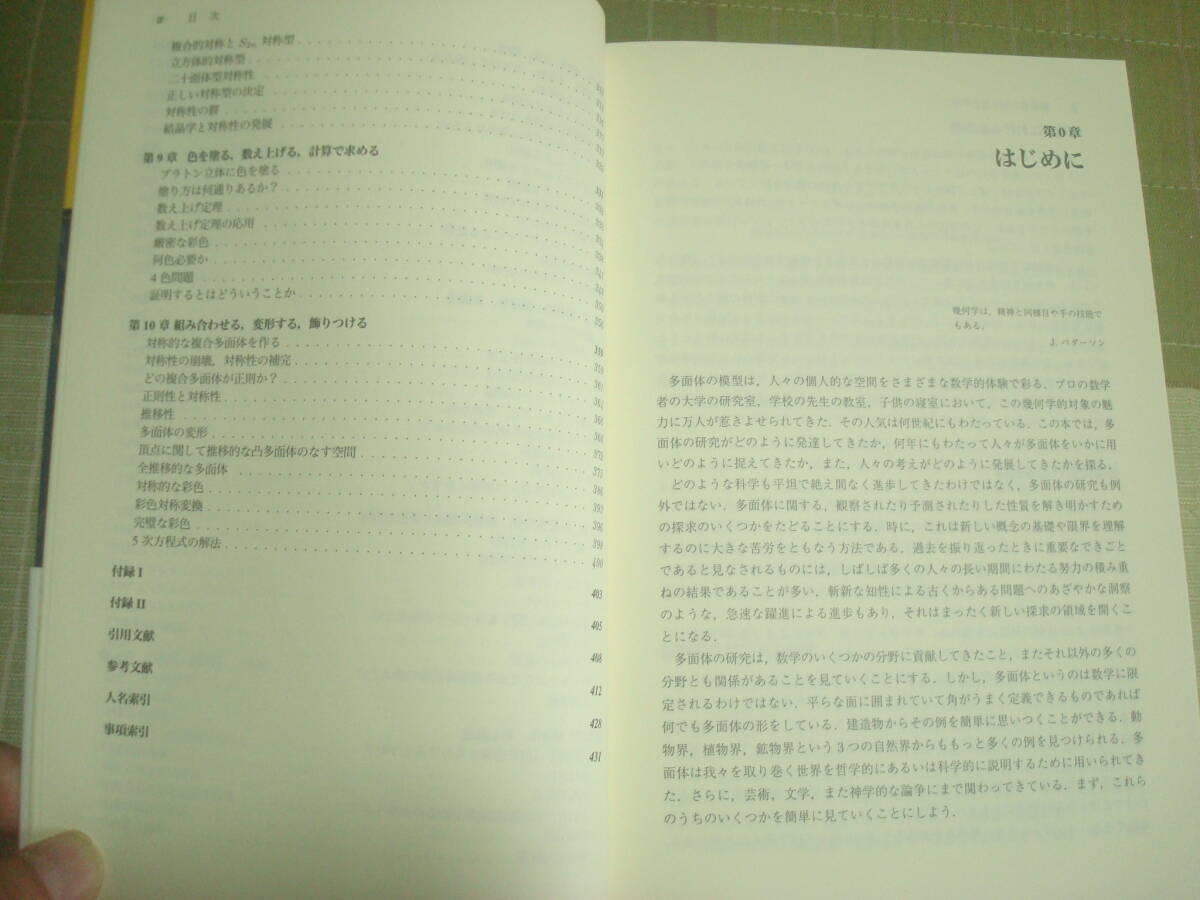 目 次
複合的対称と S₂ₙ 対称型
立方体的対称型
二十面体型対称性
正しい対称型の決定
対称性の群
結晶学と対称性の発展
第9章 色を塗る，数え上げる，計算で求める
プラトン立体に色を塗る
塗り方は何通りあるか？
数え上げ定理
数え上げ定理の応用
厳密な彩色
何色必要か
4色問題
証明するとはどういうことか
第10章 組み合わせる，変形する，飾りつける
対称的な複合多面体を作る
対称性の崩壊，対称性の補完
どの複合多面体が正則か？
正則性と対称性
推移性
多面体の変形
頂点に関して推移的な凸多面体のなす空間
全推移的な多面体
対称的な彩色
彩色対称変換
完璧な彩色
5次方程式の解法
付録 I 403
付録 II 405
引用文献 408
参考文献 412
人名索引 428
事項索引 431
第0章
はじめに
幾何学は，精神と同様目や手の技能で
もある．
J. ペダーソン
多面体の模型は，人々の個人的な空間をさまざまな数学的体験で彩る．プロの数学
者の大学の研究室，学校の先生の教室，子供の寝室において，この幾何学的対象の魅
力に万人が惹きよせられてきた．その人気は何世紀にもわたっている．この本では，多
面体の研究がどのように発達してきたか，何年にもわたって人々が多面体をいかに用
いどのように捉えてきたか，また，人々の考えがどのように発展してきたかを探る．
どのような科学も平坦で絶え間なく進歩してきたわけではなく，多面体の研究も例
外ではない．多面体に関する，観察されたり予測されたりした性質を解き明かすため
の探求のいくつかをたどることにする．時に，これは新しい概念の基礎や限界を理解
するのに大きな苦労をともなう方法である．過去を振り返ったときに重要なできごと
であると見なされるものには，しばしば多くの人々の長い期間にわたる努力の積み重
ねの結果であることが多い．斬新な知性による古くからある問題へのあざやかな洞察
のような，急速な躍進による進歩もあり，それはまったく新しい探求の領域を開くこ
とになる．
多面体の研究は，数学のいくつかの分野に貢献してきたこと，またそれ以外の多くの
分野とも関係があることを見ていくことにする．しかし，多面体というのは数学に限
定されるわけではない．平らな面に囲まれていて角がうまく定義できるものであれば
何でも多面体の形をしている．建造物からその例を簡単に思いつくことができる．動
物界，植物界，鉱物界という3つの自然界からももっと多くの例を見つけられる．多
面体は我々を取り巻く世界を哲学的にあるいは科学的に説明するために用いられてき
た．さらに，芸術，文学，また神学的な論争にまで関わってきている．まず，これら
のうちのいくつかを簡単に見ていくことにしよう．